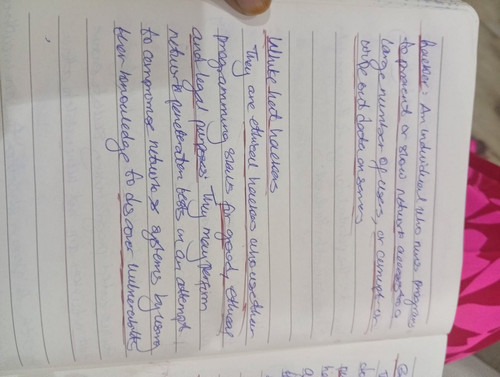 hacker: An individual who runs programs
to prevent or slow network access to a
large number of users, or corrupt or
wipe out data on servers
White hat hackers
They are ethical hackers who use their
programming skills for good, ethical
and legal purposes. They may perform
network penetration tests in an attempt
to compromise networks & systems by using
their knowledge to discover vulnerabilities